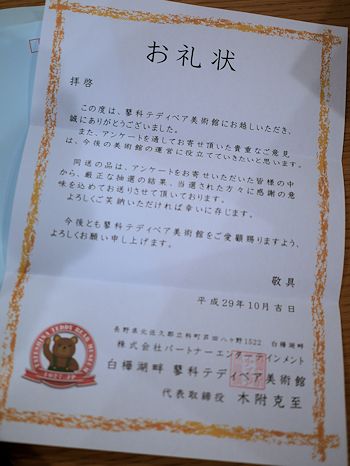 お礼状
拝啓
この度は、蓼科テディベア美術館にお越しいただき、
誠にありがとうございました。
また、アンケートを通してお寄せ頂いた貴重なご意見
は、今後の美術館の運営に役立てていきたいと思います。
同送の品は、アンケートをお寄せいただいた皆様の中
から、厳正な抽選の結果、当選された方々に感謝の意
味を込めてお送りさせて頂いております。
よろしくご笑納いただければ幸いに存じます。
今後とも蓼科テディベア美術館をご愛顧賜りますよう、
よろしくお願い申し上げます。
敬具
平成29年10月吉日
長野県北佐久郡立科町芦田八ヶ野1522 白樺湖畔
株式会社パートナーエンターテインメント
白樺湖畔 蓼科テディベア美術館
代表取締役 木附克至
TATESHINA TEDDY BEAR MUSEUM